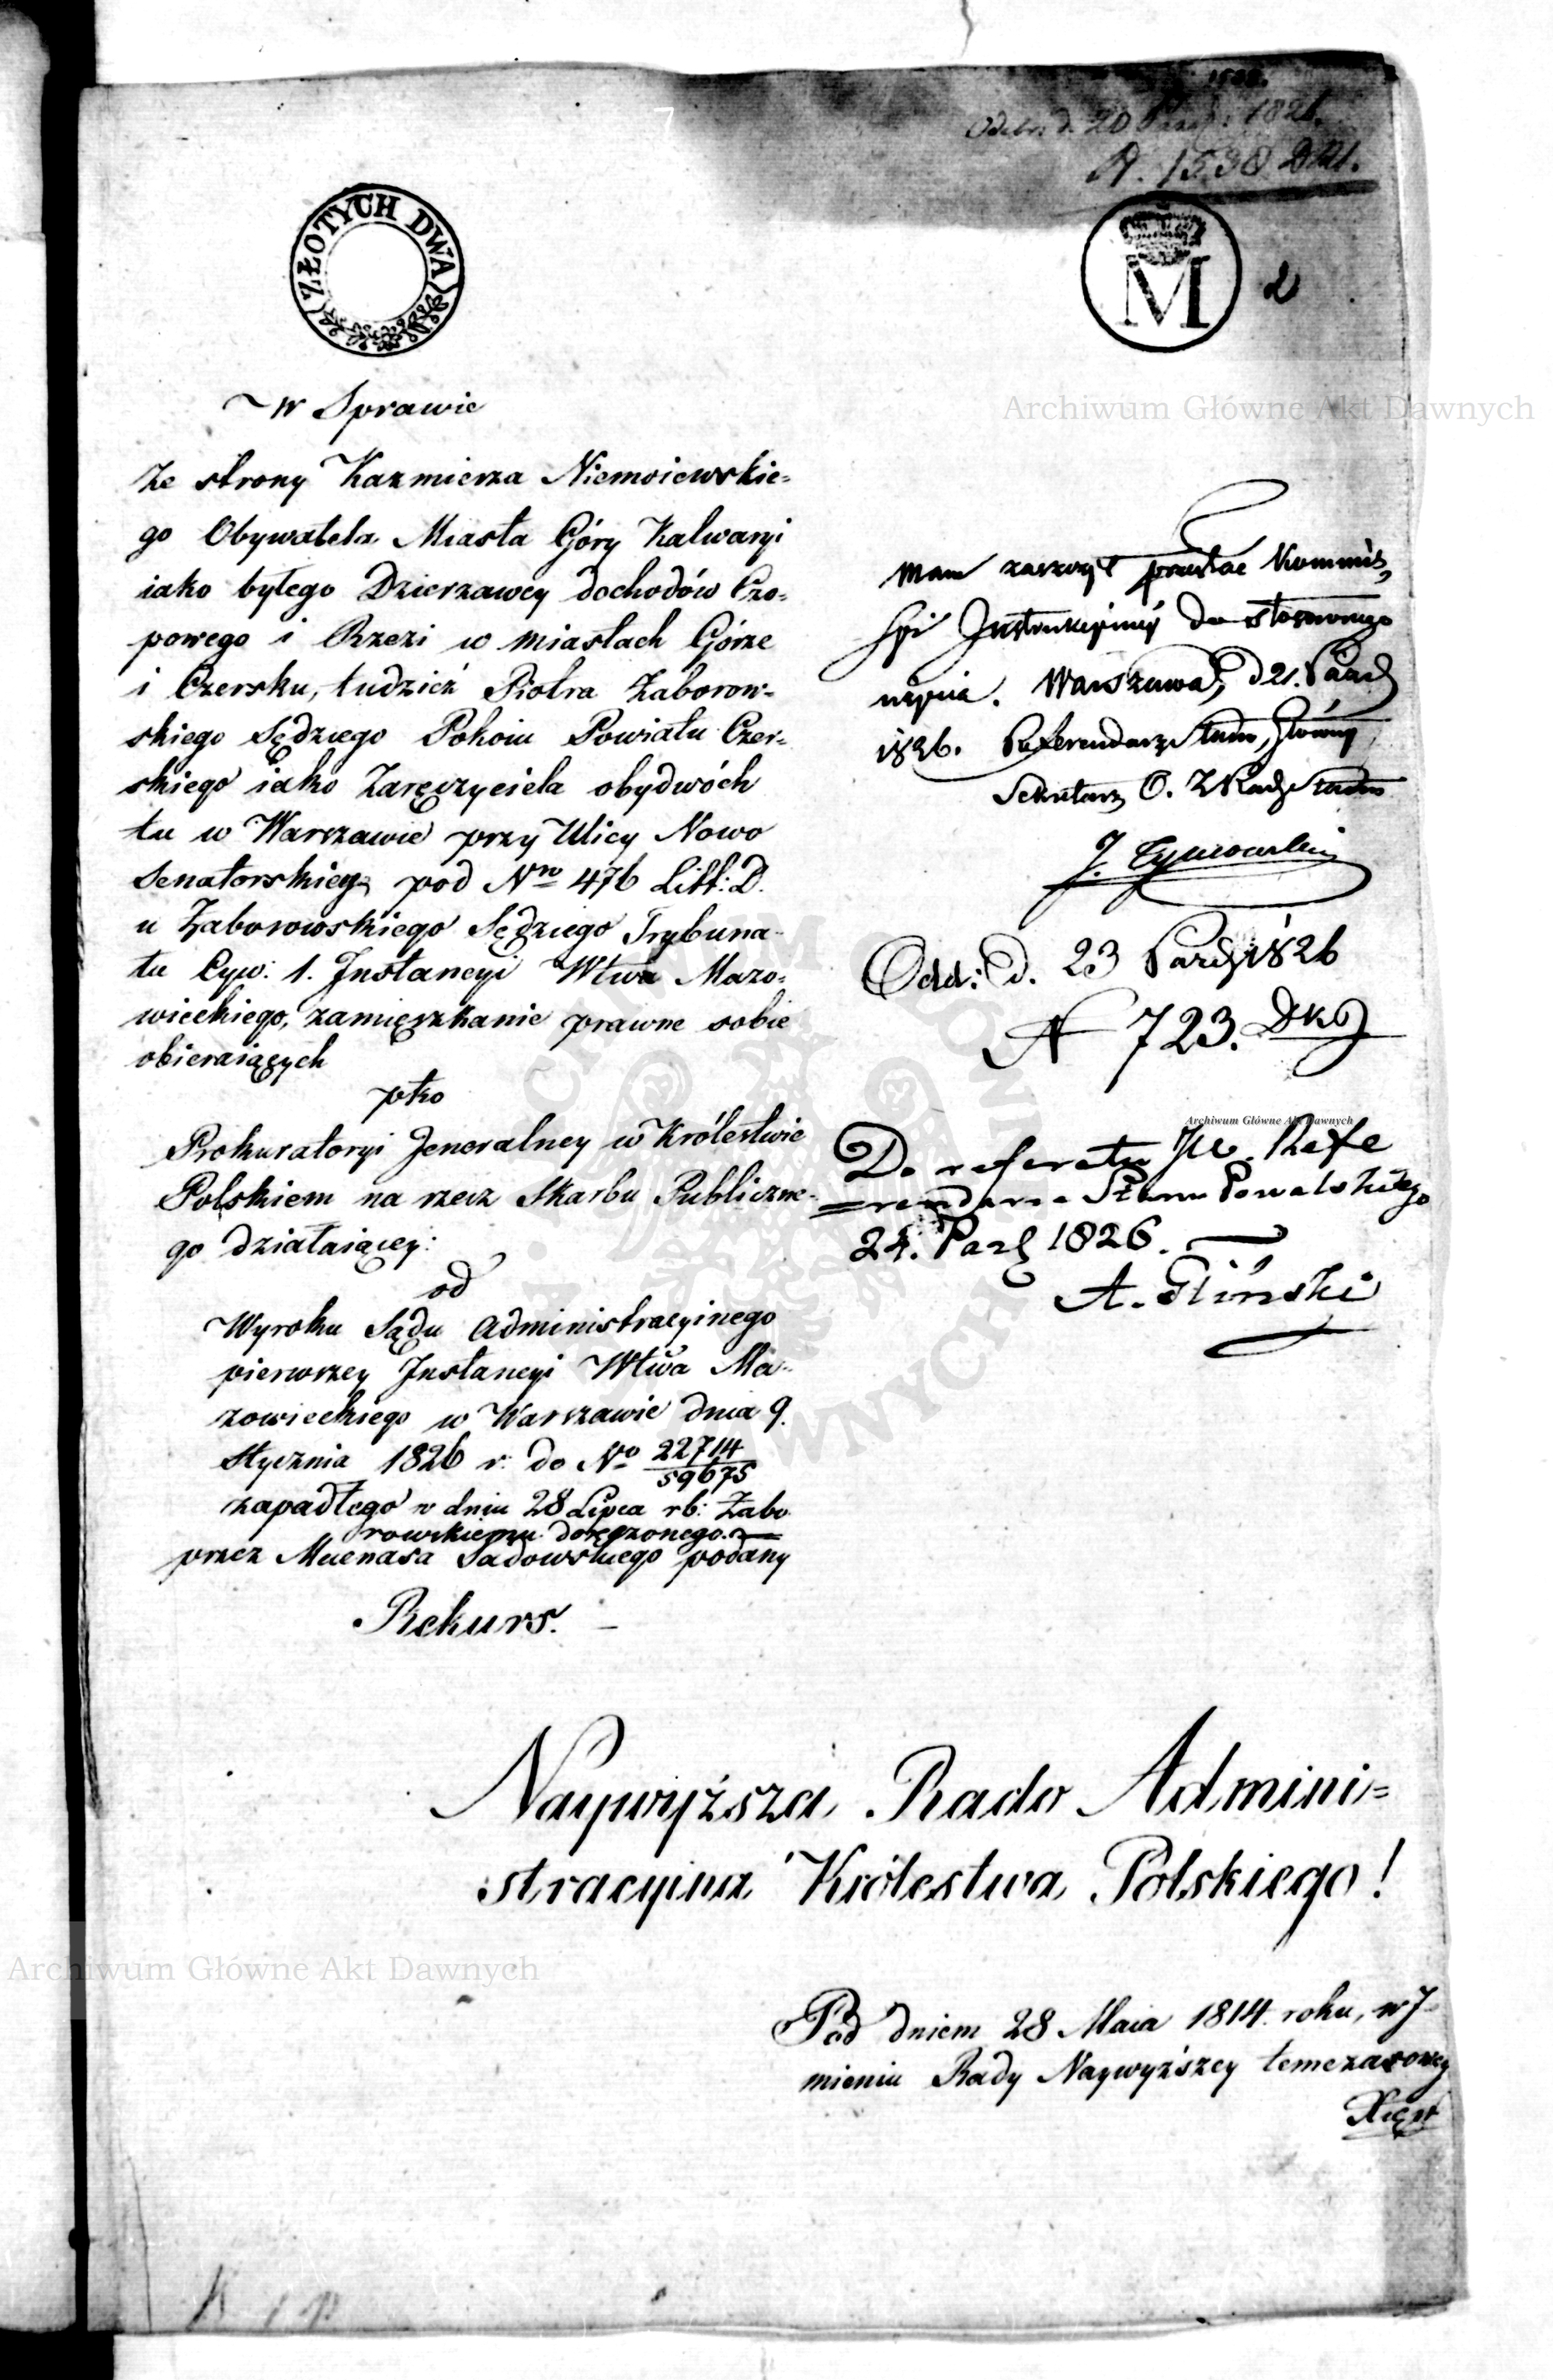 Odebr. d. 20 Paźd: 1826.
N. 1538
ZŁOTYCH DWA
M
2
W Sprawie
Ze strony Kazmierza Niemoiewskie=
go Obywatela Miasta Góry Kalwaryi
iako byłego Dzierzawcy dochodów Czo=
powego i Rzezi w miastach Górze
i Czersku, tudzież Piotra Zaborow=
skiego Sędziego Pokoiu Powiatu Czer=
skiego iako Zaręczyciela obydwóch
tu w Warszawie przy Ulicy Nowo
Senatorskiey pod Nro 476 Litt: D.
u Zaborowskiego Sędziego Trybuna-
łu Cyw: 1. Instancyi Wtwa Mazo=
wieckiego, zamięszkanie prawne sobie
obieraiących
ptko
Prokuratoryi Jeneralney w Królestwie
Polskiem na rzecz Skarbu Publiczne-
go działaiącey:
od
Wyroku Sądu Administracyinego
pierwszey Instancyi Wtwa Ma-
zowieckiego w Warszawie dnia 9.
Stycznia 1826 r. do No 22714/59675
zapadłego w dniu 28 Lipca rb: Zabo
rowskiemu doręczonego.
przez Mecenasa Sadowskiego podany
Rekurs.
Mam zaszczyt przesłać Kommis,
syi Instrukcyiney do stosownego
użycia. Warszawa, d 21. Paźd
1826. Referendarz Stanu, Główny
Sekretarz O. Z Rady Stanu
J. Tymowski
Odd: D. 23 Paźdz 1826
N 723. DKJ
Do referatu JW. Refe
=rendarza Stanu Powalskiego
24. Paźd 1826.
A. Gliński
Naywyższa Rado Admini=
stracyina Królestwa Polskiego!
Pod dniem 28 Maia 1814. roku, w J-
mieniu Rady Naywyższey temczasowey
Xięst
Archiwum Główne Akt Dawnych
Archiwum Główne Akt Dawnych
Archiwum Główne Akt Dawnych